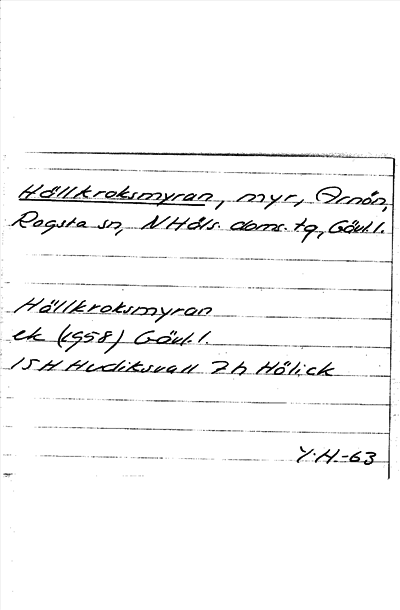 Hällkroksmyran, myr, Arnön,
Rogsta sn, N Häls. doms. tg, Gävl. l.
Hällkroksmyran
ek (1958) Gävl. l.
15H Hudiksvall 7h Hölick
Y.H.-63